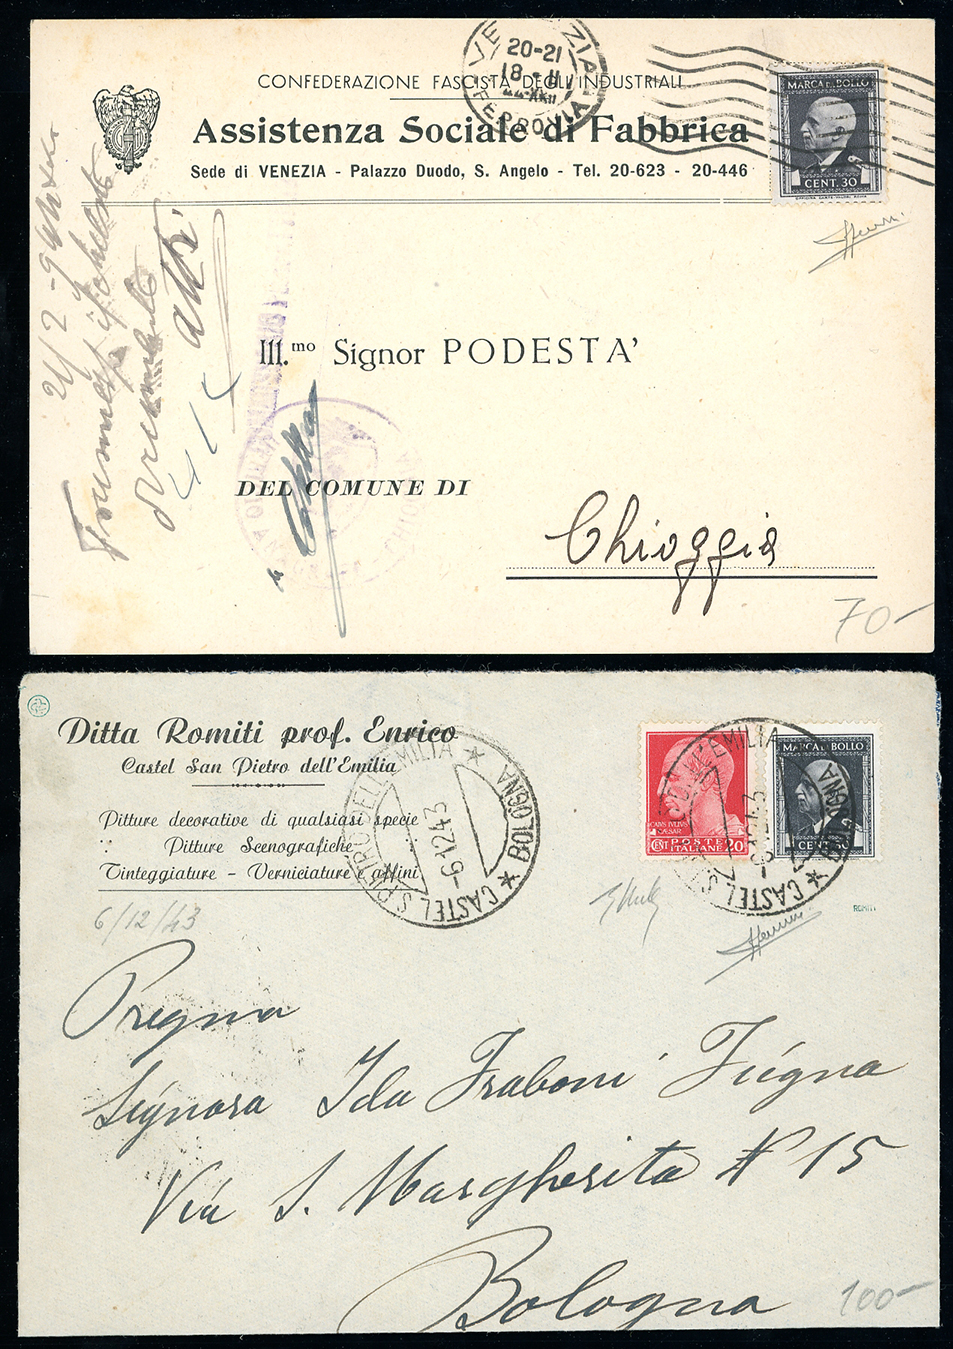 VENEZIA
20-21
18 - II
44 XXII
FERROVIA
MARCA DA BOLLO
CENT. 30
CONFEDERAZIONE FASCISTA DEGLI INDUSTRIALI
Assistenza Sociale di Fabbrica
Sede di VENEZIA - Palazzo Duodo, S. Angelo - Tel. 20-623 - 20-446
Ill.mo Signor PODESTA'
DEL COMUNE DI
Chioggia
70-
Ditta Romiti prof. Enrico
Castel San Pietro dell'Emilia
Pitture decorative di qualsiasi specie
Pitture Scenografiche
Tinteggiature - Verniciature e affini
CASTEL S. PIETRO DELL'EMILIA * BOLOGNA *
-6.12.43
POSTE
ITALIANE 20
CENT
CAESAR
MARCA DA BOLLO
CENT. 30
CASTEL S. P
EMILIA
* BOLOGNA
ROMITI
6/12/43
Pregma
Signora Ida Fraboni Fúgna
Via S. Margherita N 15
Bologna
100-